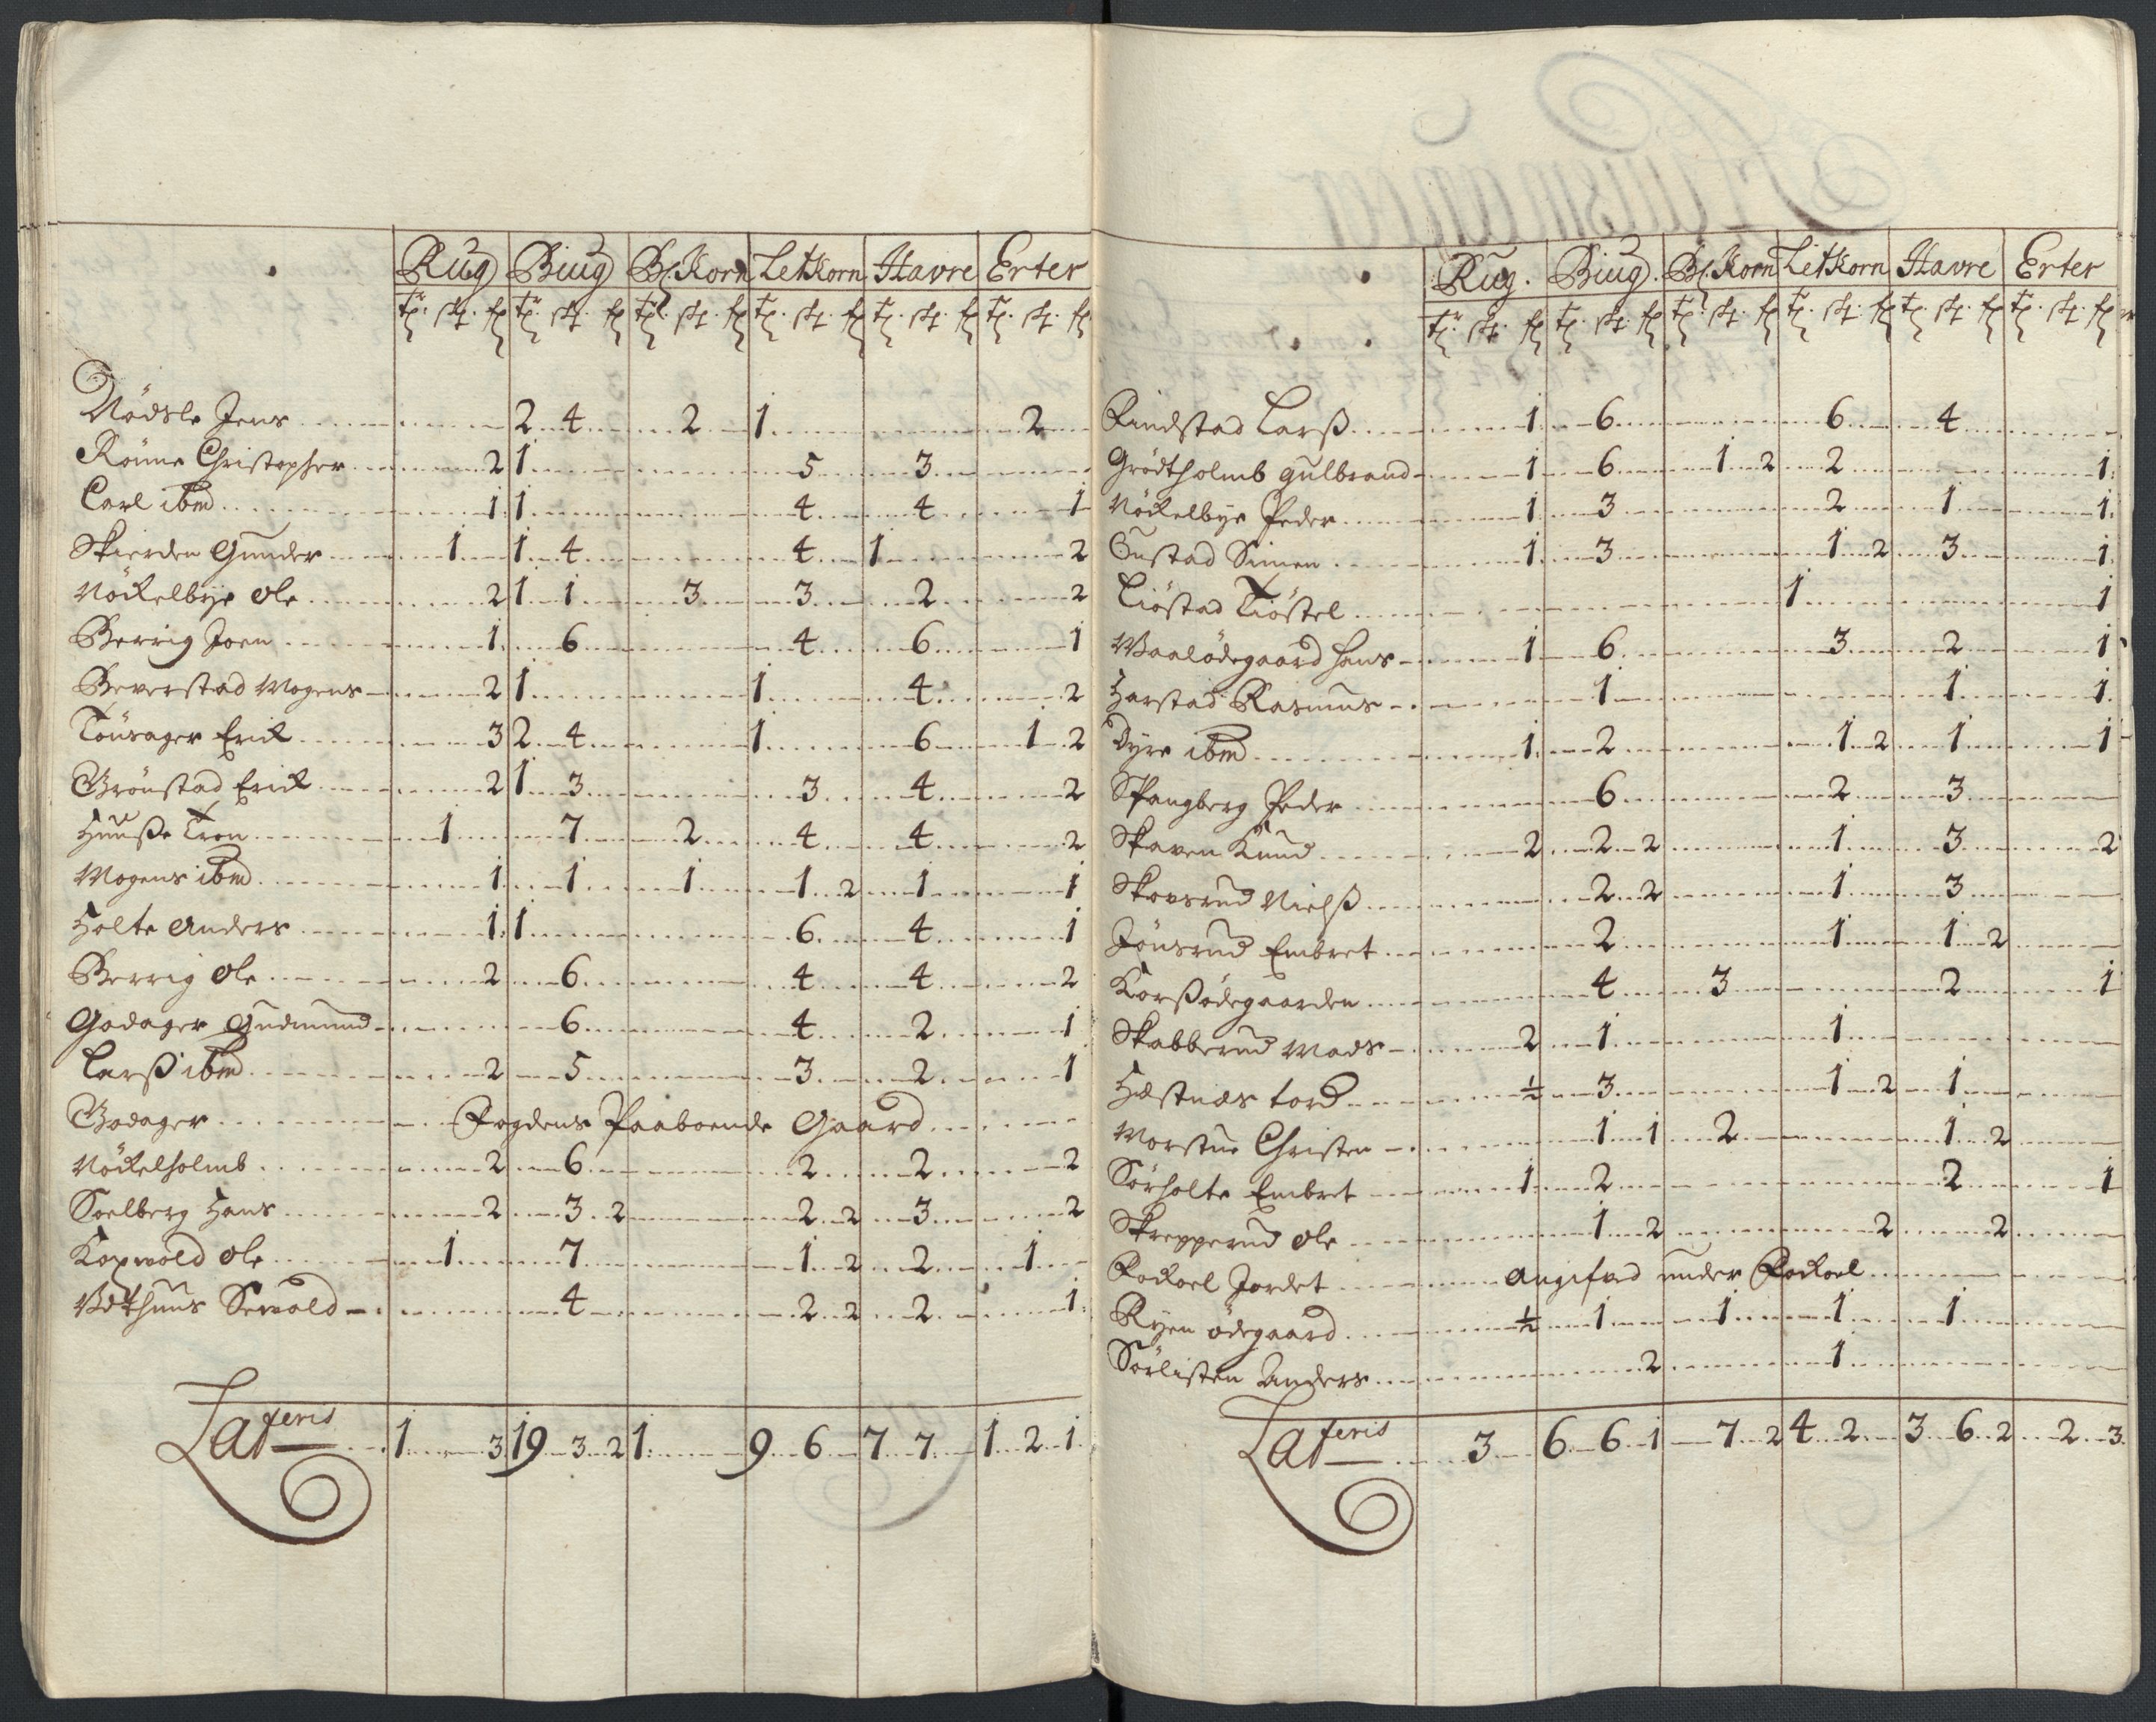 Rug Biug Bl. Korn Letkorn Havre Erter
tr. sk. fr. tr. sk. fr. tr. sk. fr. tr. sk. fr. tr. sk. fr. tr. sk. fr.
Nødsle Jens 2 4 2 1 2
Rønne Christopher 2 1 5 3
Carl ibm 1 1 4 4 1
Skierden Gunder 1 1 4 4 1 2
Nøkelbye Ole 2 1 1 3 3 2 2
Berrig Joen 1 6 4 6 1
Beverstad Mogens 2 1 1 4 2
Tønsager Erick 3 2 4 1 6 1 2
Grønstad Erick 2 1 3 3 4 2
Huuße Tron 1 7 2 4 4 2
Mogens ibm 1 1 1 1 2 1 1
Holte Anders 1 1 6 4 1
Berrig Ole 2 6 4 4 2
Godager Gudmund 6 4 2 1
Larß ibm 2 5 3 2 1
Godager Fogdens Paaboende Gaard
Nøkelholmb 2 6 2 2 2
Soelberg Hans 2 3 2 2 2 3 2
Kopvold Ole 1 7 1 2 2 1
Vdthuus Sewald 4 2 2 2 1
Lateris 1 3 19 3 2 1 9 6 7 7 1 2 1
Rug. Biug. Bl. Korn Letkorn Havre Erter
tr. sk. fr. tr. sk. fr. tr. sk. fr. tr. sk. fr. tr. sk. fr. tr. sk. fr.
Rindstad Larß 1 6 6 4
Grødtholmb Gulbrand 1 6 1 2 2 1
Nøkelbye Peder 1 3 2 1 1
Gustad Simen 1 3 1 2 3 1
Liøstad Kiøstel 1 1
Waalødegaard Hans 1 6 3 2 1
Harstad Rasmus 1 1 1
Dyre ibm 1 2 1 2 1 1
Spangberg Peder 6 2 3
Skaven Knud 2 2 2 1 3 2
Skovsrud Nielß 2 2 1 3
Jønsrud Embret 2 1 1 2
Korßødegaarden 4 3 2 1
Skabberud Mads 2 1 1
Hæstnæs tord ½ 3 1 2 1
Morstue Christen 1 1 2 1 2
Sørholte Embret 1 2 2 1
Skrepperud Ole 1 2 2 2
Rokoel Jordet Angifved under Rokoel
Ryen ødegaard ½ 1 1 1 1
Sørlisten Anders 2 1
Lateris 3 6 6 1 7 2 4 2 3 6 2 2 3